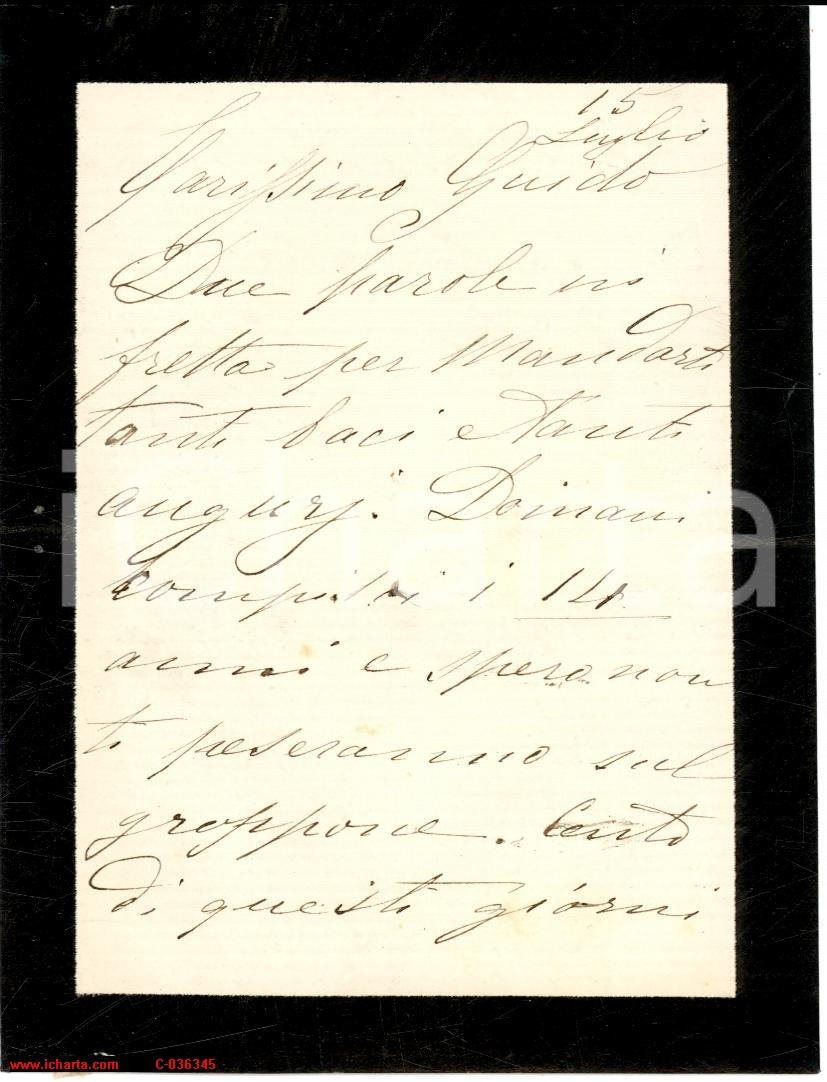 15
Luglio
Carissimo Guido
Due parole in
fretta per mandarti
tanti baci e tanti
augurj. Domani
compisci i 14
anni e spero non
ti peseranno sul
groppone. Cento
di questi giorni
icharta
www.icharta.com C-036345